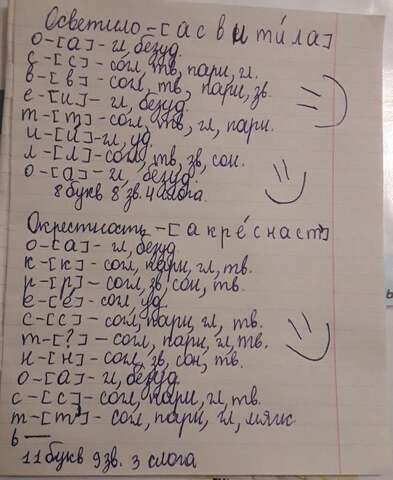 Осветило-[асвитила]
о-[а]-гл, безуд.
с-[с]-согл, тв, парн, гл.
в-[в]-согл, тв, парн, зв.
е-[и]-гл, безуд.
т-[т]-согл, тв, гл, парн.
и-[и]-гл, уд.
л-[л]-согл, тв, зв, сон.
о-[а]-гл, безуд.
8 букв 8 зв. 4 слога.
Окрестность-[акрéснаст]
о-[а]-гл, безуд.
к-[к]-согл, парн, гл, тв.
р-[р]-согл, зв, сон, тв.
е-[е]-согл, уд.
с-[с]-согл, парн, гл, тв.
т-[?]-согл, парн, гл, тв.
н-[н]-согл, зв, сон, тв.
о-[а]-гл, безуд.
с-[с]-согл, парн, гл, тв.
т-[т']-согл, парн, гл, мягк.
ь—
11 букв 9 зв. 3 слога